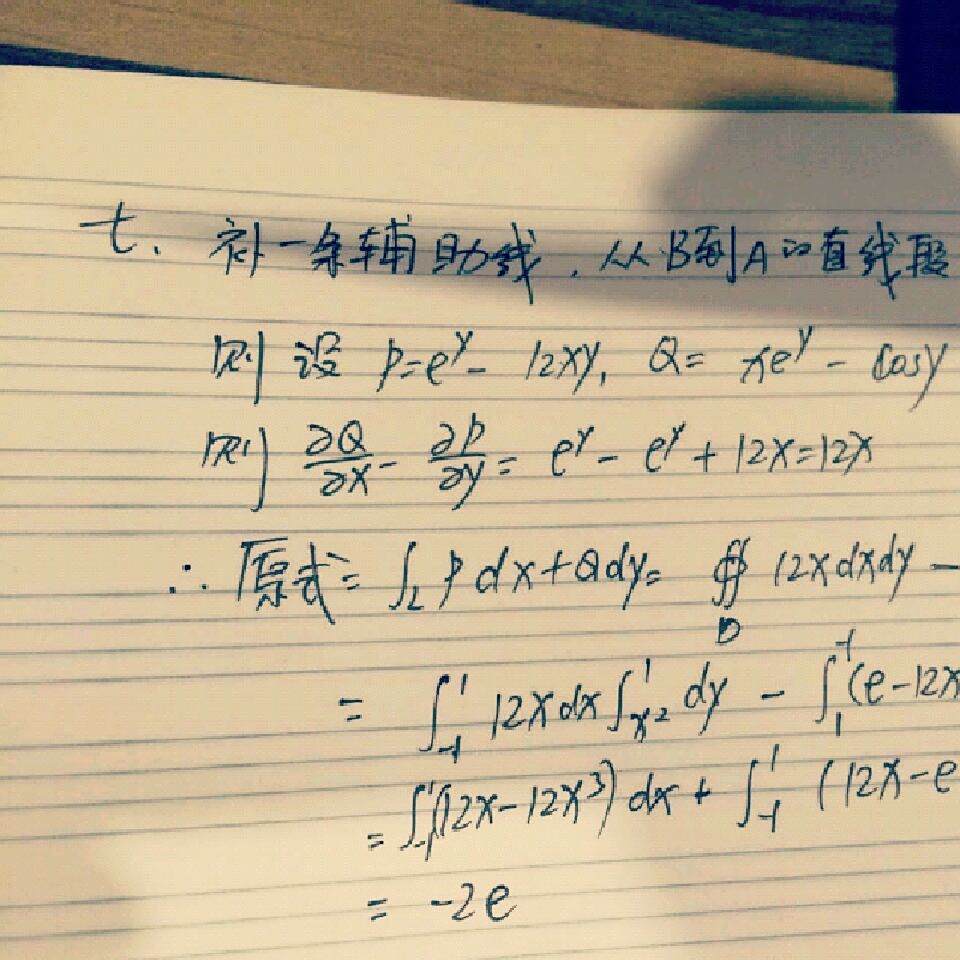 七、补一条辅助线，从B到A的直线段
则设 P=e^y-12xy, Q= xe^y-cosy
则 ∂Q/∂x - ∂P/∂y = e^y-e^y+12x=12x
∴原式=∫_L Pdx+Qdy= ∯_D 12xdxdy-
= ∫_{-1}^{1} 12xdx∫_{x^2}^{1} dy - ∫_{1}^{-1}(e-12x
= ∫_{-1}^{1}(12x-12x^3)dx+∫_{-1}^{1}(12x-e
= -2e